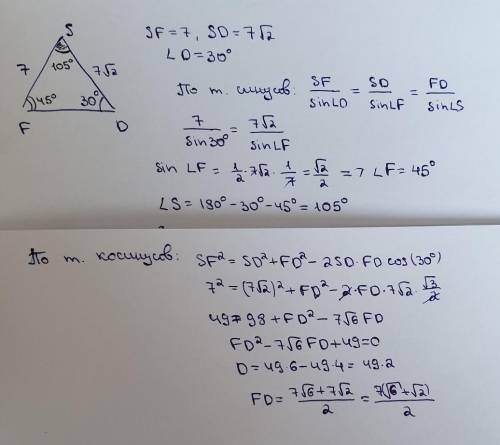 S
105°
7
7√2
45°
30°
F
D
SF = 7, SD = 7√2
∠D = 30°
По т. синусов: SF/sin∠D = SD/sin∠F = FD/sin∠S
7/sin30° = 7√2/sin∠F
sin ∠F = 1/2 · 7√2 · 1/7 = √2/2 => ∠F = 45°
∠S = 180° - 30° - 45° = 105°
По т. косинусов: SF² = SD² + FD² - 2SD · FD cos(30°)
7² = (7√2)² + FD² - 2 · FD · 7√2 · √3/2
49 = 98 + FD² - 7√6 FD
FD² - 7√6 FD + 49 = 0
D = 49 · 6 - 49 · 4 = 49 · 2
FD = (7√6 + 7√2)/2 = 7(√6 + √2)/2